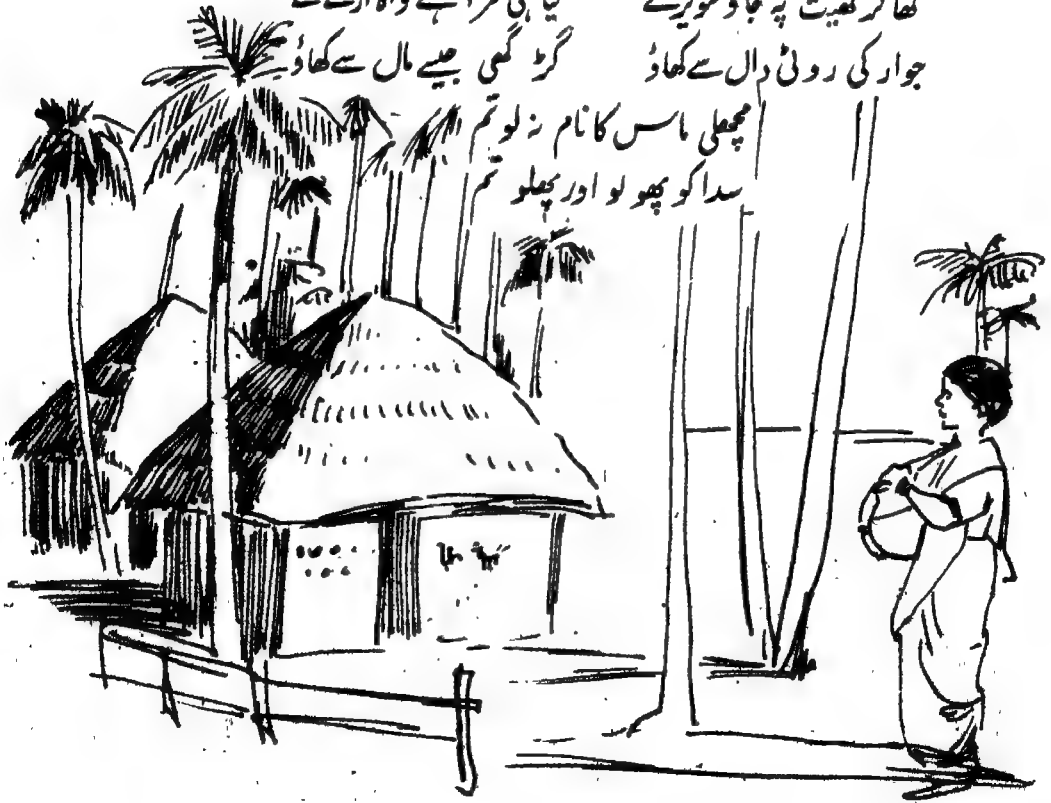 کھا کر کھیت پہ جاؤ سویرے
جوار کی روٹی دال سے کھاؤ گڑ گھی جیسے مال سے کھاؤ
مچھلی ماس کا نام نہ لو تم
سدا کو پھولو اور پھلو تم